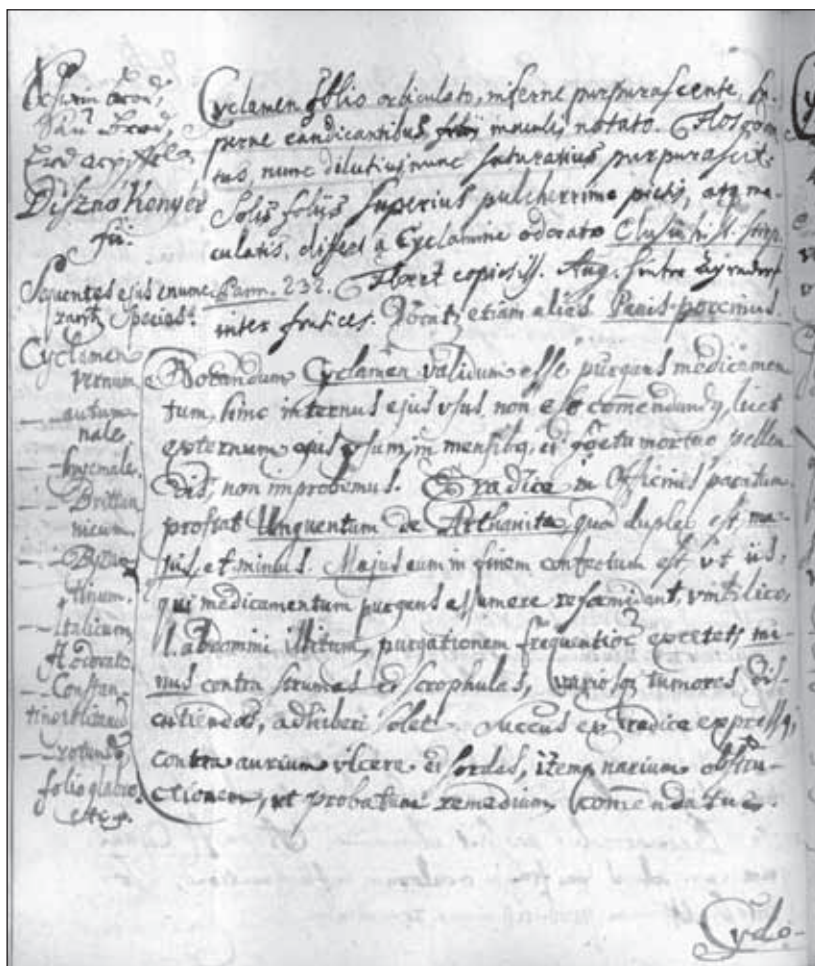 Schwein brod,
Saŭ brod,
Erd apffel.
Disznó Kenyér
fű:
Sequentes ejus enume
rantr Species:
Cyclamen
vernum,
— autum
nale,
— hyemale,
— Brittan
nicum,
— Byzan
tinum,
— Italicum,
odorato
— Constan
tinopolitanum
— rotundo,
folio glabro
Cyclamen folio orbiculato, inferne purpurascente, su-
perne candicantibus maculis notato. Flos
nunc dilutius nunc saturatius purpurascit:
Solis folijs superius pulcherrime pictis, atq ma-
culatis, differt a Cyclamine odorato Clusii hist. stirp.
Pann. 232. Floret copiosiss. Aug. intra
inter frutices. Vocatr etiam alias Panis porcinus.
Notandum Cyclamen validum esse purgans medicamen
tum, hinc internus ejus usus, non est comendandq, licet
externum ejus usum, in mensibq, et foetu mortuo pellen
dis, non improbemus. E radice in Officinis paratum
prostat Unguentum de Arthanita, quod duplex est, ma-
jus, et minus. Majus eum in finem confectum est, ut iis,
qui medicamentum purgans assumere reformidant, umbilico,
l. abdomini illitum, purgationem excitet, mi-
nus contra strumas et scrophulas, variosq tumores dis-
cutiendos, adhiberi solet. Succus ex radice expressq,
contra aurium ulcera et sordes, item narium obstru-
ctionem, ut probatum remedium comendatur.
Cydo-